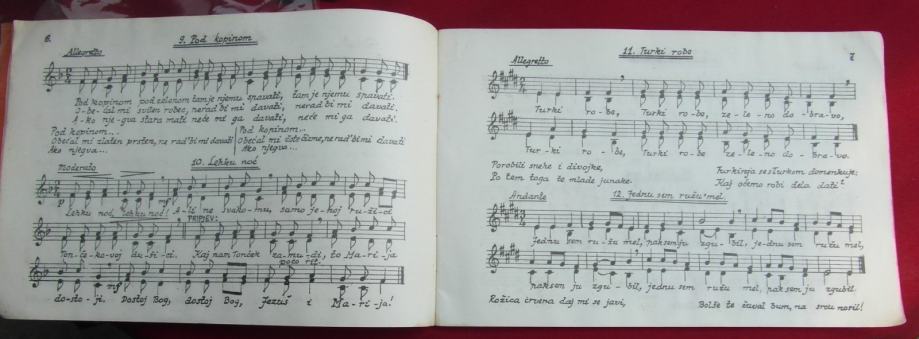 6.
9. Pod kopinom
Allegretto
Pod kopinom pod zelenom tam je njemu spavati, tam je njemu spavati.
O-be-ćal mi svilen robec, nerad bi mi davati, nerad bi mi davati.
A-ko nje-gva stara mati neće mi ga davati, neće mi ga davati.
Pod kopinom... Pod kopinom...
Obećal mi zlaten prsten, ne rad bi mi davati Obećal mi čižme, ne rad bi mi davati
Ako njegva... Ako njegva...
10. Lehku noć
Moderato
p mf
Lehku noć, lehku noć! A-li ne svako-mu, samo je-noj ru-ži-ci
PRIPJEV:
Ton-če-ko-voj du-ši-ci. Kaj nam Tonček za-mu-di, to Ma-ri-ja
poco rit.
mf
do-sto-ji. Dostoj Bog, dostoj Bog, Jezuš i Ma-ri-ja!
7
11. Turki robe
Allegretto
Turki ro-be, Turki ro-be, ze-le-no do-bra-vo,
Tur-ki ro-be, Turki ro-be ze-le-no do-bra-vo.
Porobili snehe i divojke,
Po tem toga te mlade junake.
Turkinja se s Turkom domenkuje:
Kaj očemo robi dela dati?
12. Jednu sem ružu mel
Andante
Jednu sem ru-žu mel, pak sem ju zgu-bil, je-dnu sem ružu mel,
pak sem ju zgu-bil, jednu sem ružu mel, pak sem ju zgubil.
Rožica crvena daj mi se javi,
Bolše te čuval bum, na srcu nosil!